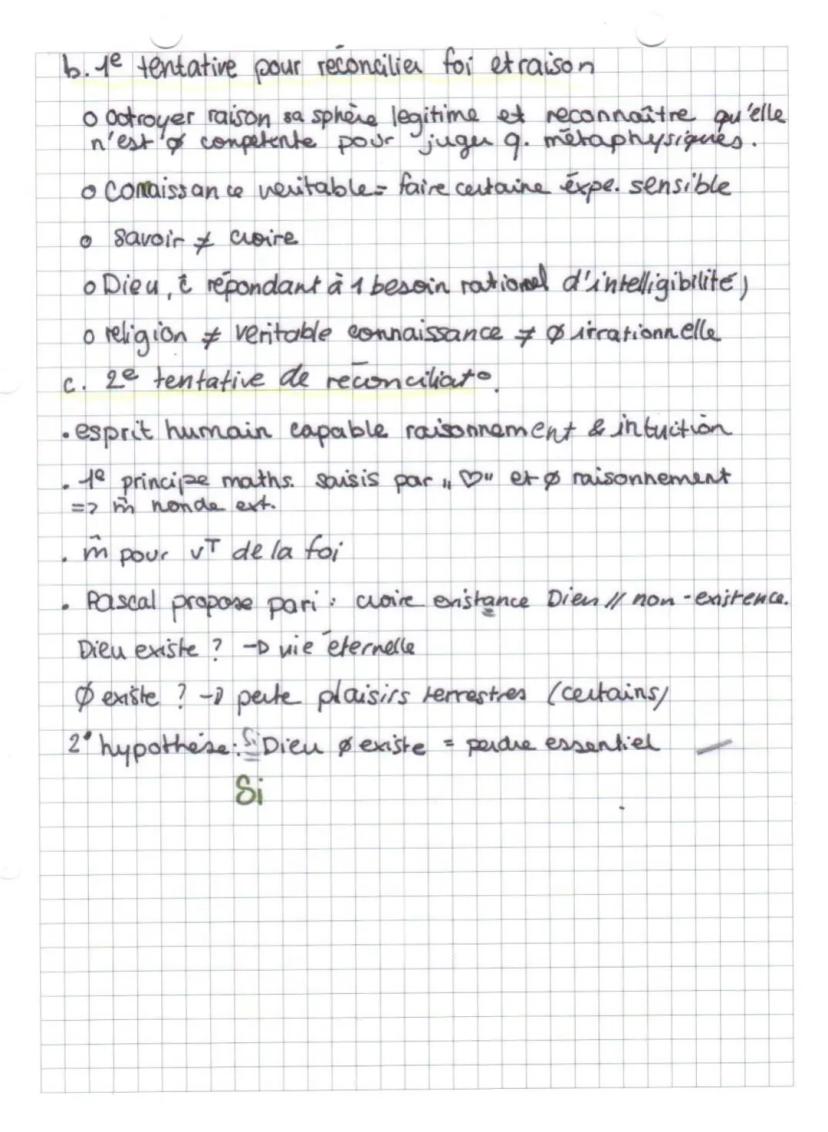 b. 1e tentative pour réconcilier foi et raison
o Octroyer raison sa sphère legitime et reconnaître qu'elle
n'est ø compétente pour juger q. métaphysiques.
o Connaissance veritable = faire certaine expe. sensible
o Savoir ≠ croire
o Dieu, ĉ répondant à 1 besoin rationnel d'intelligibilité)
o religion ≠ veritable connaissance ≠ ø irrationnelle
c. 2e tentative de réconciliato.
. esprit humain capable raisonnement & intuition
. 1e principe maths. saisis par "♡" et ø raisonnement
=> m̂ monde ext.
. m̂ pour vT de la foi
. Pascal propose pari : croire existance Dieu // non-existence.
Dieu existe ? -> vie éternelle
Ø existe ? -> perte plaisirs terrestres (certains)
2° hypothèse: Si Dieu ø existe = perdre essentiel
Si